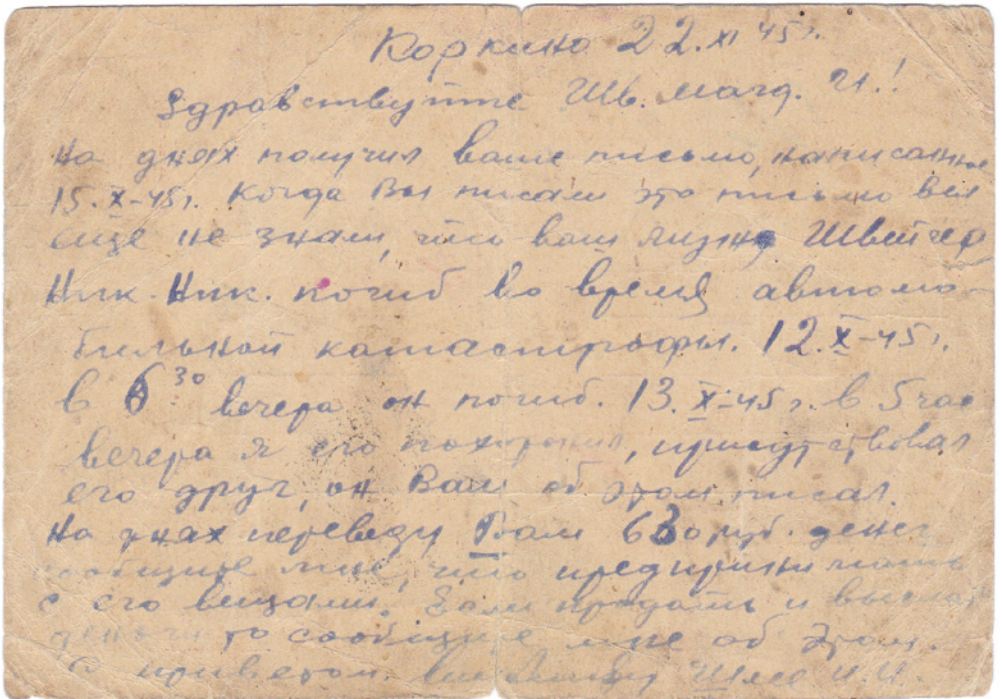 Коркино 22.XI 45 г.
Здравствуйте Шв. Магд. И.!
На днях получил ваше письмо, написанное
15.X-45 г. Когда Вы писали это письмо вы
еще не знали, что ваш Швейцер
Ник. Ник. погиб во время автомо-
бильной катастрофы. 12.X-45 г.
в 6 30 вечера он погиб. 13.X-45 г. в 5 час
вечера я его похоронил, присутствовал
его друг, он Вам об этом писал.
На днях переведу Вам 630 руб. денег
сообщите мне, что предпринимать
с его вещами. Если продать и выслать
деньги то сообщите мне об этом.
С приветом. И.И.